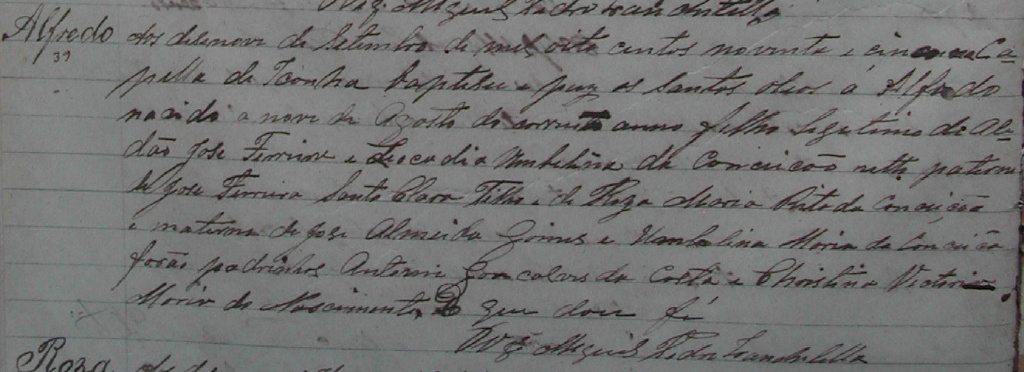 Vigº Miguel Pedro
Alfredo Aos desenove de Setembro de mil oito centos noventa e cinco na Ca-
39 pella de Iconha baptisei e puz os Santos oleos a Alfredo
nascido a nove de Agosto do corrente anno filho legitimo de
José Ferreira e Leocadia Umbelina da Conceição netto paterno
de José Ferreira Santa Clara Filho e de Roza Maria Rita da Conceição
e materna de José Almeida e Umbelina Maria da Conceição
forão padrinhos Antonio Goncalves da Costa e Christina Victoria
Maria do Nascimento, De que dou fé
Vigº Miguel Pedro
Roza Aos de